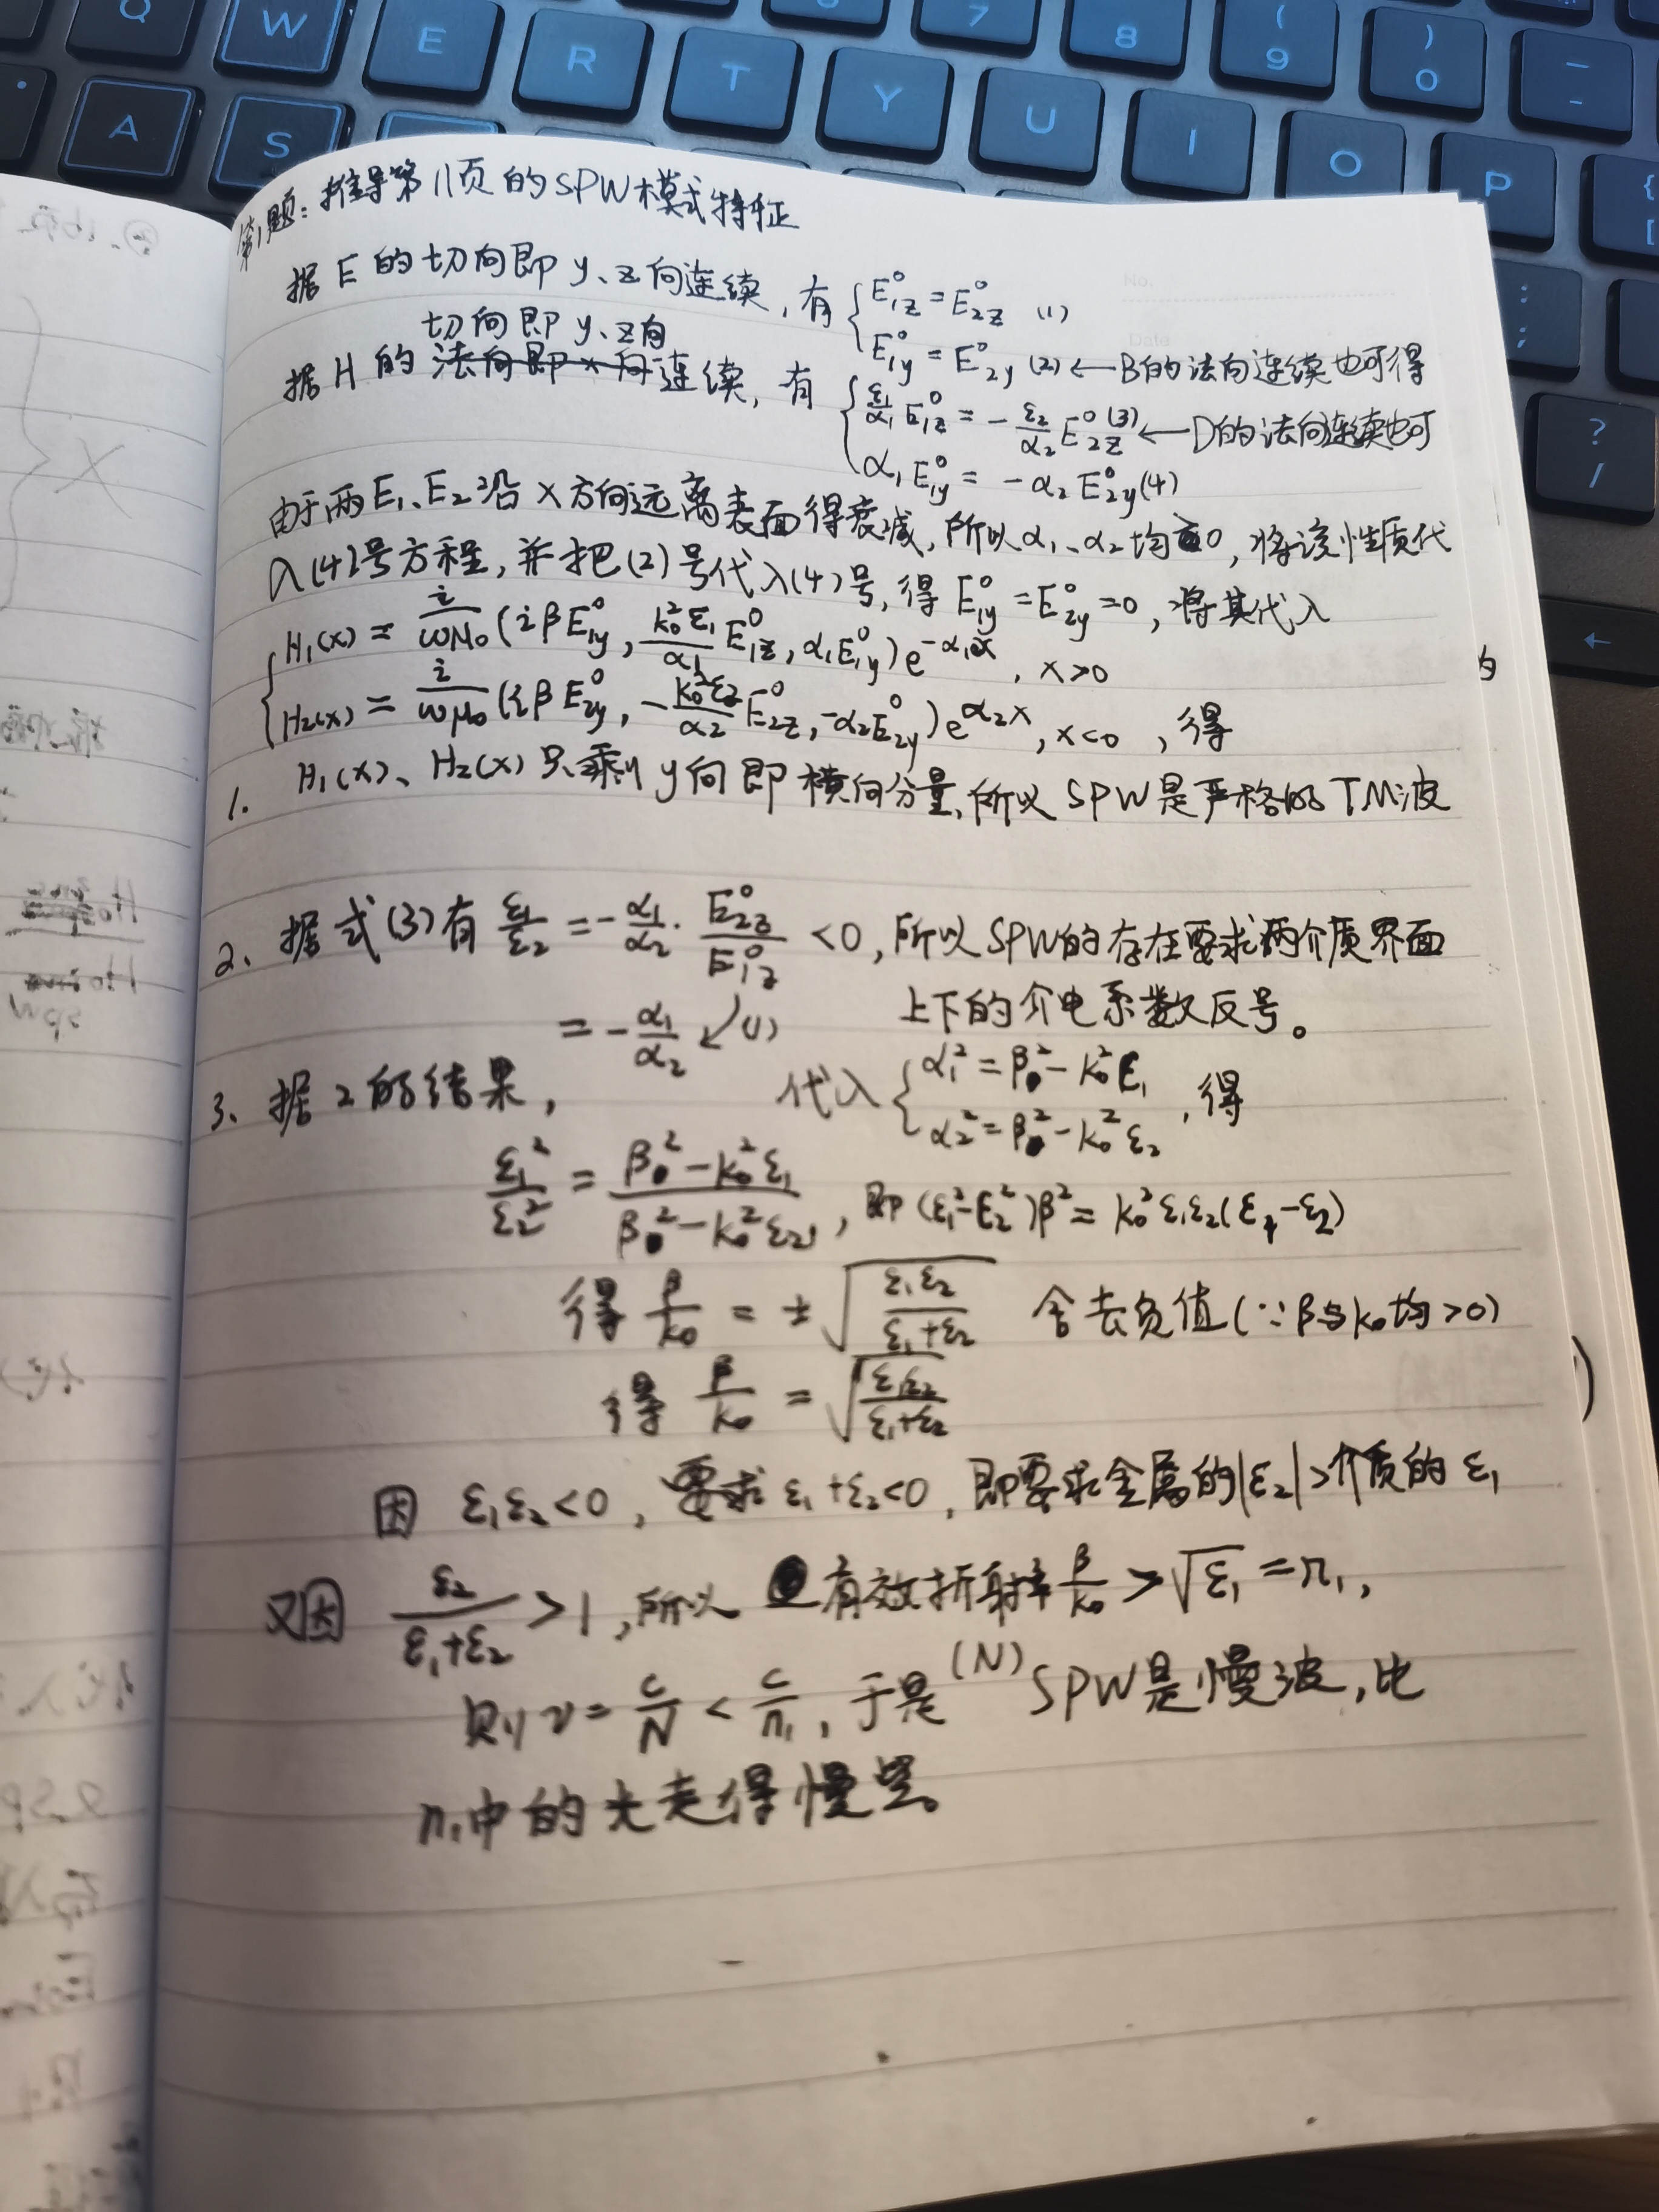 Q W E R T Y U I O P
7 8 ( 9 ) 0
A S
? /
No.
Date
第1题: 推导第11页的SPW模式特征
据E的切向即y、z向连续,有 { E₁z⁰ = E₂z⁰ (1)
E₁y⁰ = E₂y⁰ (2) ← B的法向连续也可得
切向即y、z向
据H的法向即x向连续,有 { ε₁/α₁ E₁z⁰ = - ε₂/α₂ E₂z⁰ (3) ← D的法向连续也可
α₁E₁y⁰ = -α₂E₂y⁰ (4)
由于两E₁、E₂沿x方向远离表面得衰减,所以α₁、α₂均 0,将该性质代
入(4)号方程,并把(2)号代入(4)号,得 E₁y⁰ = E₂y⁰ = 0,将其代入
{ H₁(x) = i/ωμ₀ (iβE₁y⁰, k₀²ε₁/α₁ E₁z⁰, α₁E₁y⁰) e^(-α₁x), x>0
H₂(x) = i/ωμ₀ (iβE₂y⁰, -k₀²ε₂/α₂ E₂z⁰, -α₂E₂y⁰) e^(α₂x), x<0 ,得
1. H₁(x)、H₂(x)只剩y向即横向分量,所以SPW是严格的TM波
2、据式(3)有 ε₁/ε₂ = -α₁/α₂ · E₂z⁰/E₁z⁰ <0,所以SPW的存在要求两介质界面
= -α₁/α₂ ↙(1) 上下的介电系数反号。
3、据2的结果, 代入 { α₁² = β² - k₀²ε₁
α₂² = β² - k₀²ε₂ ,得
ε₁²/ε₂² = (β² - k₀²ε₁)/(β² - k₀²ε₂),即 (ε₁² - ε₂²)β² = k₀²ε₁ε₂(ε₁ - ε₂)
得 β/k₀ = ±√(ε₁ε₂/(ε₁+ε₂)) 舍去负值(∵β与k₀均>0)
得 β/k₀ = √(ε₁ε₂/(ε₁+ε₂))
因 ε₁ε₂<0,要求ε₁+ε₂<0,即要求金属的|ε₂|>介质的ε₁
又因 ε₂/(ε₁+ε₂) >1,所以 有效折射率 β/k₀ > √ε₁ = n₁,
(N)
则v = c/N < c/n₁,于是SPW是慢波,比
n₁中的光走得慢些。